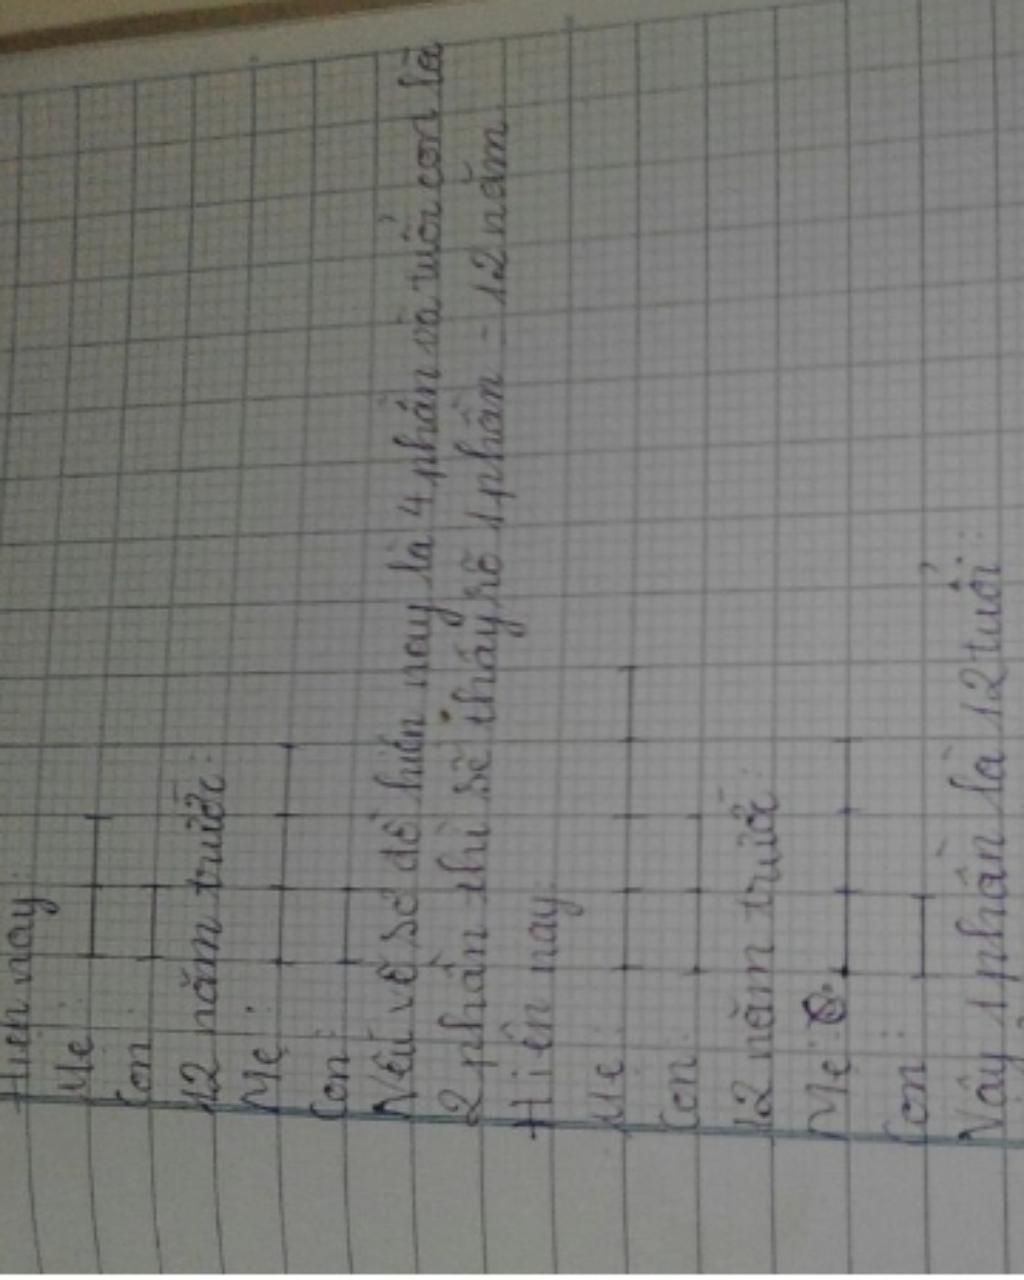 Hiện nay:
Mẹ:
Con:
12 năm trước:
Mẹ:
Con:
Nếu vẽ sơ đồ hiện nay là 4 phần và tuổi con là
2 phần thì sẽ thấy rõ 1 phần = 12 năm
Hiện nay:
Mẹ:
Con:
12 năm trước:
Mẹ:
Con:
Vậy 1 phần là 12 tuổi: